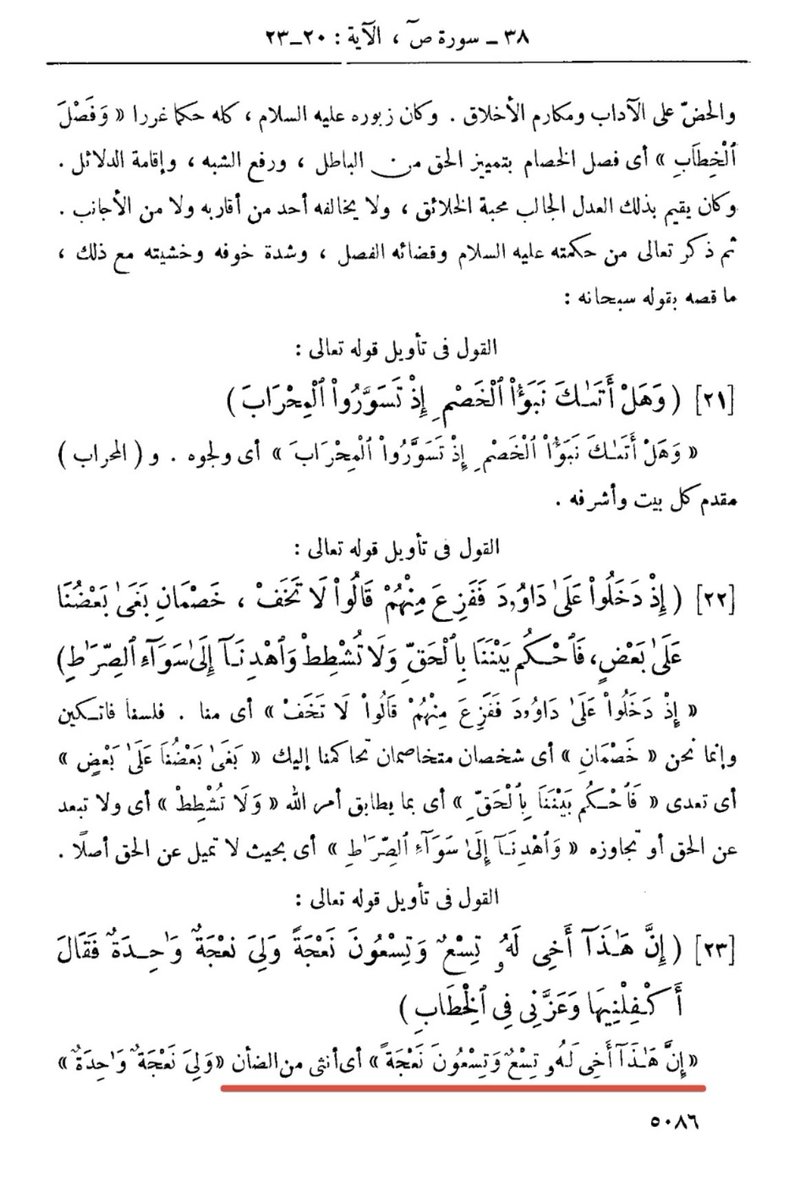 ٣٨ ـ سورة صٓ ، الآية : ٢٠ـ٢٣
والحضّ على الآداب ومكارم الأخلاق . وكان زبوره عليه السلام ، كله حكما غررا « وَفَصْلَ
ٱلْخِطَابِ » أى فصل الخصام بتمييز الحق من الباطل ، ورفع الشبه ، وإقامة الدلائل .
وكان يقيم بذلك العدل الجالب محبة الخلائق ، ولا يخالفه أحد من أقاربه ولا من الأجانب .
ثم ذكر تعالى من حكمته عليه السلام وقضائه الفصل ، وشدة خوفه وخشيته مع ذلك ،
ما قصه بقوله سبحانه :
القول فى تأويل قوله تعالى :
[٢١] ( وَهَلْ أَتَىٰكَ نَبَؤُا۟ ٱلْخَصْمِ إِذْ تَسَوَّرُوا۟ ٱلْمِحْرَابَ )
« وَهَلْ أَتَىٰكَ نَبَؤُا۟ ٱلْخَصْمِ إِذْ تَسَوَّرُوا۟ ٱلْمِحْرَابَ » أى ولجوه . و ( المحراب )
مقدم كل بيت وأشرفه .
القول فى تأويل قوله تعالى :
[٢٢] ( إِذْ دَخَلُوا۟ عَلَىٰ دَاوُۥدَ فَفَزِعَ مِنْهُمْ قَالُوا۟ لَا تَخَفْ ، خَصْمَانِ بَغَىٰ بَعْضُنَا
عَلَىٰ بَعْضٍ، فَٱحْكُم بَيْنَنَا بِٱلْحَقِّ وَلَا تُشْطِطْ وَٱهْدِنَآ إِلَىٰ سَوَآءِ ٱلصِّرَٰطِ)
« إِذْ دَخَلُوا۟ عَلَىٰ دَاوُۥدَ فَفَزِعَ مِنْهُمْ قَالُوا۟ لَا تَخَفْ » أى منا . فلسنا فاتكين
وإنما نحن « خَصْمَانِ » أى شخصان متخاصمان تحاكمنا إليك « بَغَىٰ بَعْضُنَا عَلَىٰ بَعْضٍ »
أى تعدى « فَٱحْكُم بَيْنَنَا بِٱلْحَقِّ » أى بما يطابق أمر الله « وَلَا تُشْطِطْ » أى ولا تبعد
عن الحق أو تجاوزه « وَٱهْدِنَآ إِلَىٰ سَوَآءِ ٱلصِّرَٰطِ » أى بحيث لا تميل عن الحق أصلًا .
القول فى تأويل قوله تعالى :
[٢٣] ( إِنَّ هَٰذَآ أَخِى لَهُۥ تِسْعٌ وَتِسْعُونَ نَعْجَةً وَلِىَ نَعْجَةٌ وَٰحِدَةٌ فَقَالَ
أَكْفِلْنِيهَا وَعَزَّنِى فِى ٱلْخِطَابِ )
« إِنَّ هَٰذَآ أَخِى لَهُۥ تِسْعٌ وَتِسْعُونَ نَعْجَةً» أى أنثى من الضأن «وَلِىَ نَعْجَةٌ وَٰحِدَةٌ »
٥٠٨٦